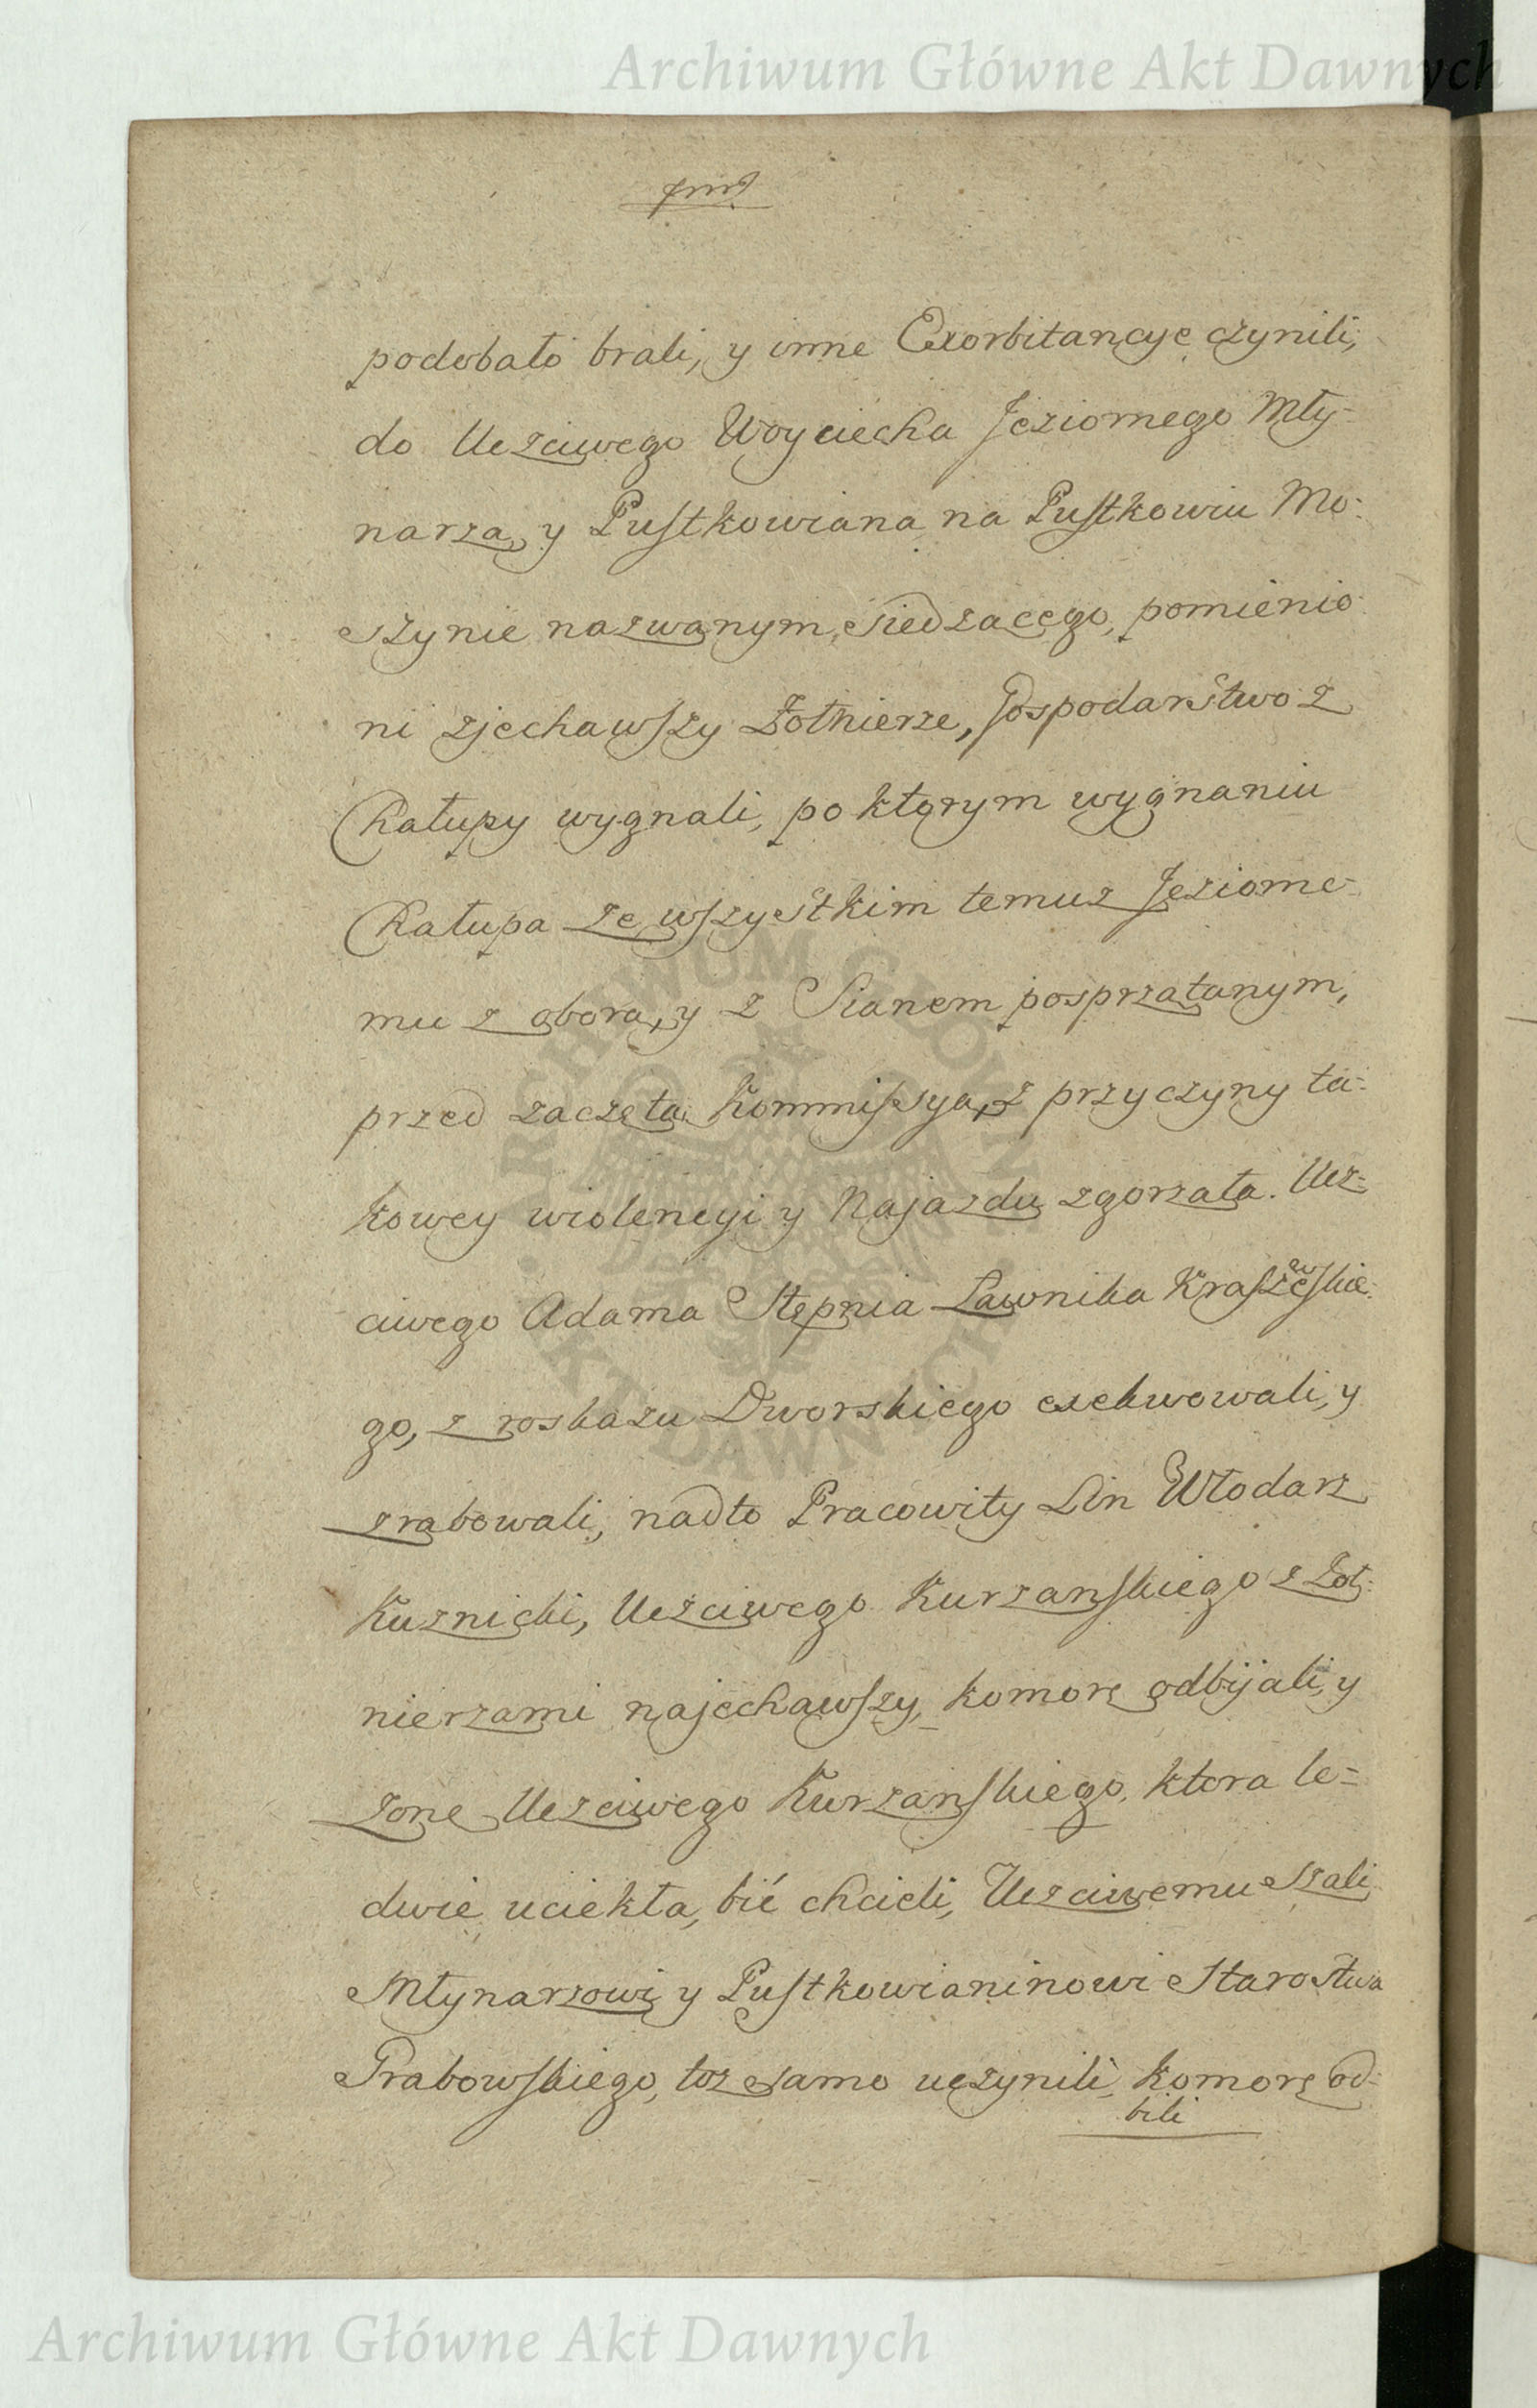 Archiwum Główne Akt Dawnych
podobało brali, y inne Exorbitancye czynili,
do Uczciwego Woyciecha Jeziornego Mły-
narza, y Pustkowiana na Pustkowiu Mo-
szynie nazwanym, siedzącego, pomienio-
ni zjechawszy Żołnierze, Gospodarstwo z
Chałupy wygnali, po ktorym wygnaniu
Chałupa ze wszystkim temuz Jeziorne-
mu z oborą, y z Sianem posprzątanym,
przed zaczętą Kommissyą, z przyczyny ta-
kowey wiolencyi y Najazdu zgorzała. Ucz-
ciwego Adama Stępnia Ławnika Kraszewskie-
go, z roskazu Dworskiego exekwowali, y
zrabowali, nadto Pracowity Lin Włodarz
Kuznicki, Uczciwego Kurzanskiego z Żoł-
nierzami najechawszy, komorę odbijali, y
zonę Uczciwego Kurzanskiego, ktora le-
dwie uciekła, bić chcieli, Uczciwemu Szali
Młynarzowi y Pustkowianinowi Starostwa
Grabowskiego, toz samo uczynili, komorę od-
bili
ARCHIWUM GŁÓWNE AKT DAWNYCH
Archiwum Główne Akt Dawnych